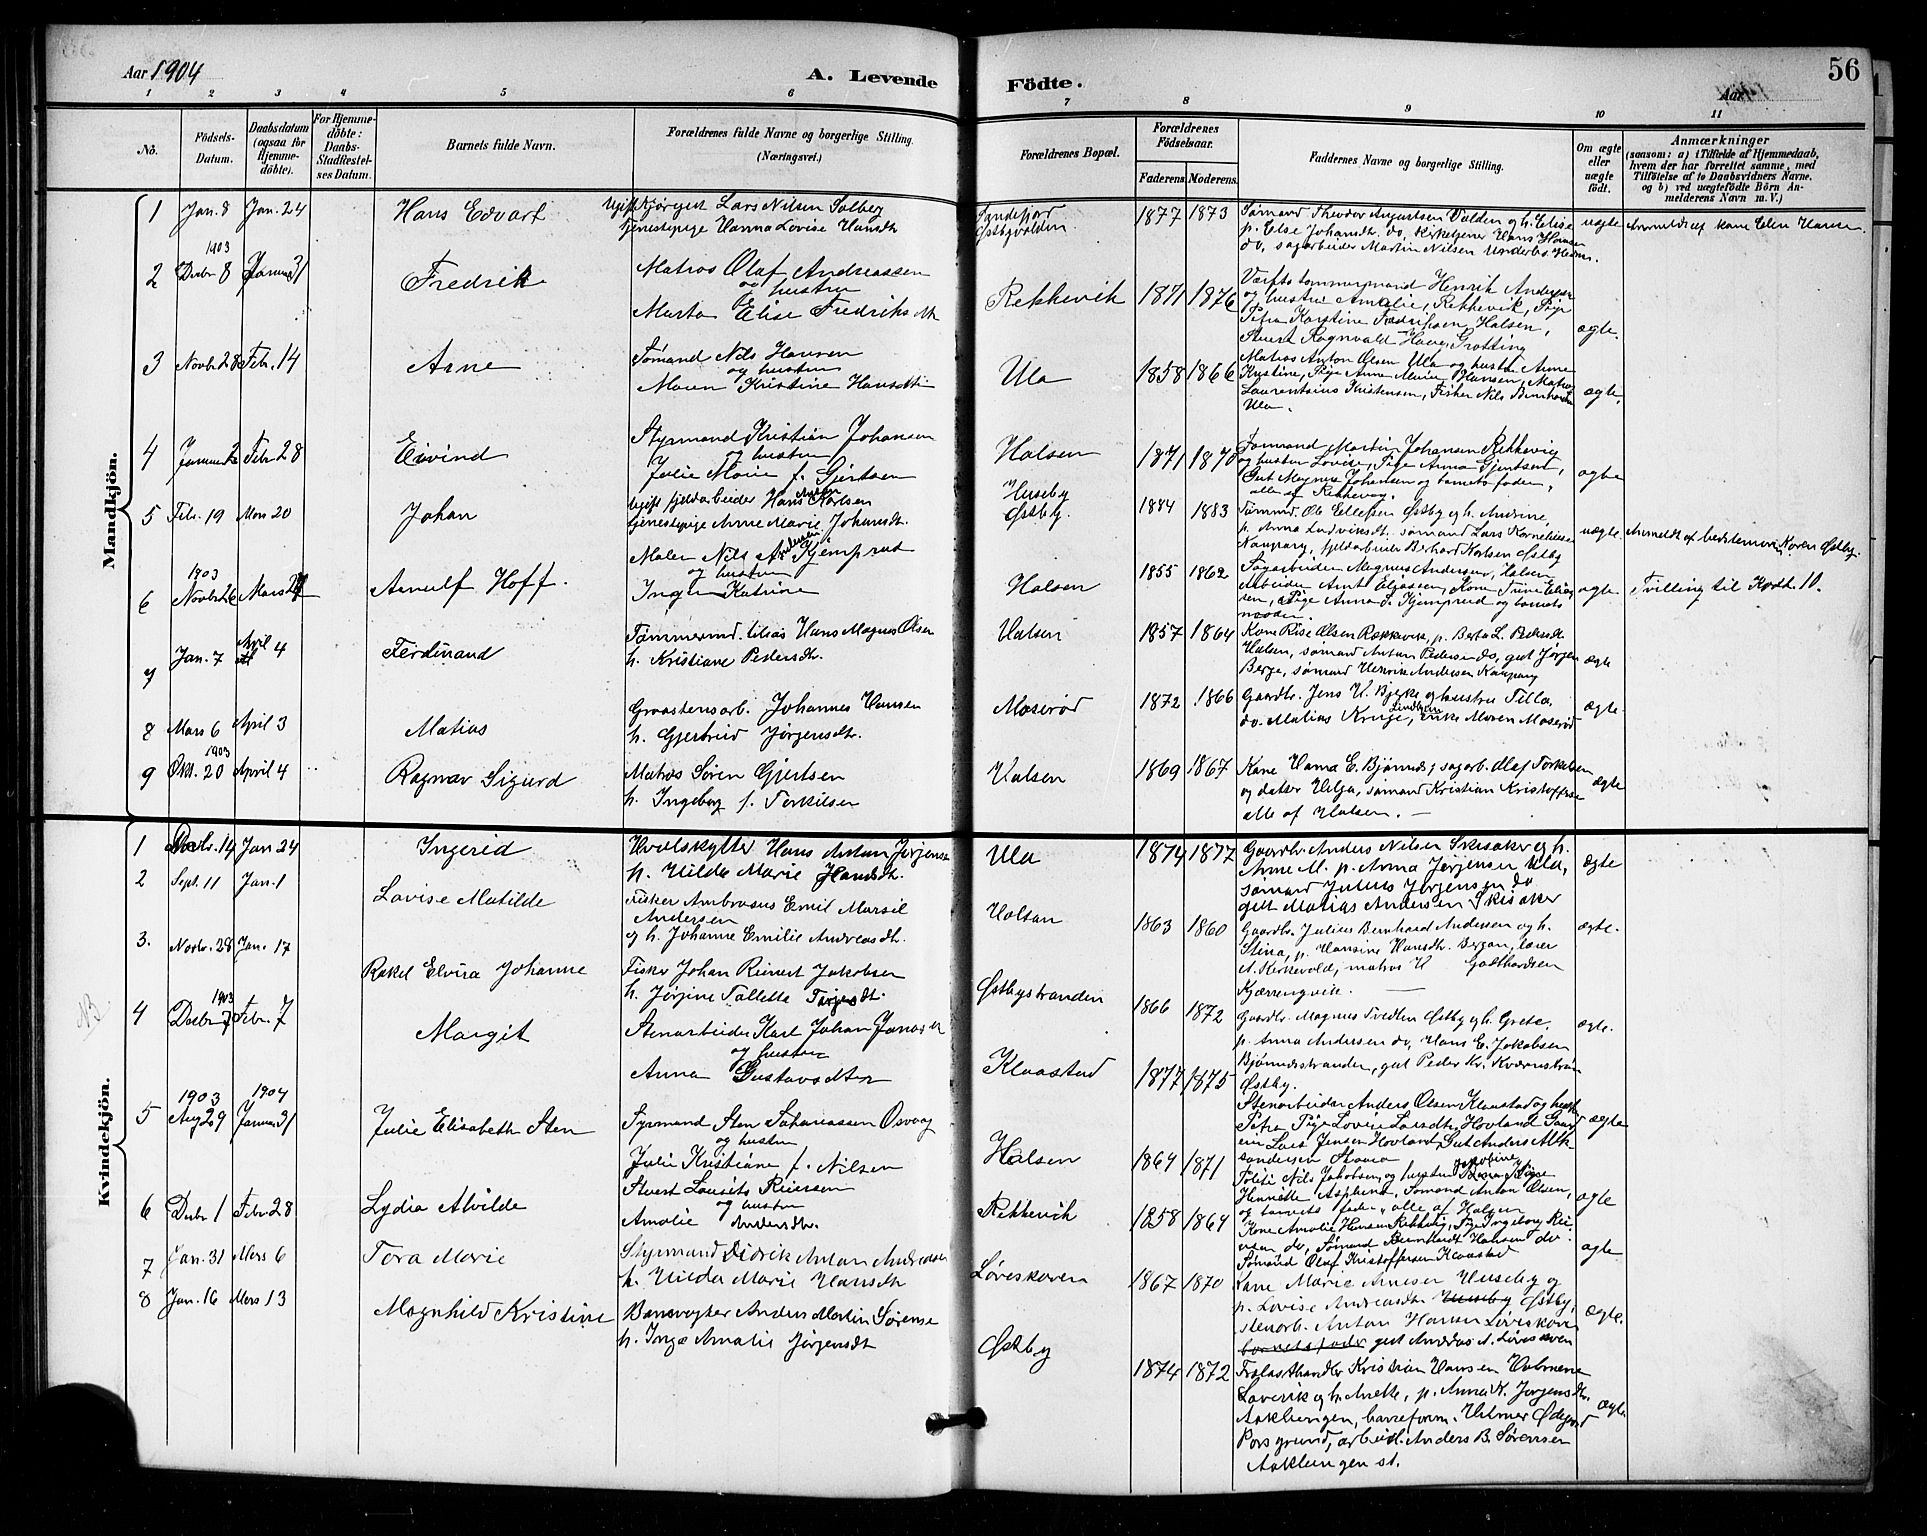 Aar 1904
A. Levende Födte.
Aar
56
1 2 3 4 5 6 7 8 9 10 11
No.
Födsels-Datum.
Daabsdatum (ogsaa for Hjemmedöbte).
For Hjemmedöbte: Daabs-Stadfestelses Datum.
Barnets fulde Navn.
Forældrenes fulde Navne og borgerlige Stilling. (Næringsvei.)
Forældrenes Bopæl.
Forældrenes Födselsaar.
Faderens. Moderens.
Faddernes Navne og borgerlige Stilling.
Om ægte eller uægte födt.
Anmærkninger (saasom: a) i Tilfælde af Hjemmedaab, hvem der har forrettet samme, med Tilföielse af to Daabsvidners Navne, og b) ved uægtefödte Börn Anmelderens Navn m. V.)
Mandkjön.
1 Jan. 8 Jan. 24 Hans Edvart
Lars Nilsen Solberg
Tjenestepige Hanna Lovise Hansdtr
Sandefjord
Østbyvolden
1877 1873
Sømand Theodor Augustsen Valden og h. Elise
p. Else Johandtr. do, Kirketjener Hans Hansen
do, sagarbeider Martin Nilsen
uægte
Anmeldt af kone Elen Hansen.
2 1903 Decbr 8 Januar 31 Fredrik
Matros Olaf Andreassen
og hustru
Marta Elise Fredriksdtr
Rekkevik 1871 1876
Værftstømmermand Henrik Anderssen
og hustru Amalie, Rekkevik, Pige
Petra Karstine Fredriksen Halsen,
Stuert Ragnvald Grotting
ægte.
3 Novbr 28 Febr. 14 Arne
Sømand Nils Hansen
og hustru
Maren Kristine Hansdtr
Ula 1858 1866
Matros Anton Olsen Ula og hustru Anne
Kristine, Pige Anne Marie Hansen, Matros
Laurentsius Kristensen, Fisker Nils
Ula.
ægte.
4 Januar 2 Febr. 28 Eivind
Styrmand Kristian Johansen
og hustru
Julie Marie f. Gjertsen
Halsen 1871 1870
Sømand Martin Johansen Rekkevig
og hustru Lovise, Pige Anna Gjertsen,
Gut Magnus Johansen og barnets fader,
alle af Rekkevig.
ægte
5 Febr. 19 Mars 20 Johan
Ugift fjeldarbeider Hans Karlsen
tjenestepige Anne Marie Johansdtr.
Huseby
Østby.
1884 1883
Sømnd. Ob. Ellefsen Østby og h. Andrine,
p. Anna Ludviksdtr. sømand Lars Korneliussen
Kaupang, fjeldarbeider Berhard Karlsen Østby
uægte
Anmeldt af bedstemoren Karen Østby.
6 1903 Novbr. 26 Mars 27 Arnulf Hoff.
Maler Nils Andersen Kjemprud
og hustru
Inga Katrine
Halsen 1855 1862
Sagarbeider Magnus Andersen, Halsen
Arbeider Arnt Eljassen, Kone Trine Elias
sen, Pige Anna S. Kjemprud og barnets
moder.
ægte
Tvilling til Kvdk. 10.
7 Jan. 7 April 4 Ferdinand
Tømmermd. Hans Magnus Olsen
h. Kristiane Pedersdtr.
Halsen 1857 1864
Kone Rise Olsen Rækkevik, p. Berta L. Pedersdtr.
Halsen, sømand Antan Pedersen do, gut Jørgen
Berge, sømand Henrik Andersen Kaupang
ægte
8 Mars 6 April 3 Matias
Graastensarb. Johannes Hansen
h. Gjertrud Jørgensdtr.
Moserød 1872 1866
Gaardbr. Jens H. Bjerke og hustru Tilla,
do. Matias Kruge, Lindhjem, enke Maren Moserød
ægte.
9 1903 Okt. 20 April 4 Ragnar Sigurd
Matros Søren Gjertsen
h. Ingeborg f. Torkilsen
Halsen 1869 1867
Kone Hanna E. Bjønnes, sagarb. Olaf Torkelsen
og datter Helga, sømand Kristian Kristoffersen
alle af Halsen. —
ægte
Kvindekjön.
1 Decbr. 14 Jan 24 Ingerid
Hvalskytter Hans Antan Jørgensen
h. Hilda Marie Hansdtr.
Ula 1874 1877
Gaardbr. Anders Nilsen Skisaker og h.
Anne M. p. Anna Jørgensen Ula,
sømand Julius Jørgensen do
gut Matias Andersen Skisaker
ægte
2 Sept. 11 Jan. 1 Lovise Matilde
Fisker Ambrosus Emil Marsil
Andersen
og h. Johanne Emilie Andreasdtr.
Halsen 1863 1860
Gaardbr. Julius Bernhard Andersen og h.
Stina, p. Hansine Hansdtr. Bergan, lærer
A. Kirkevold, matros H Gotthardsen
Kjærrengvik. —
ægte.
3. Novbr. 28 Jan. 17 Rakel Elvira Johanne
Fisker Johan Reinert Jakobsen
h. Jørgine Tallette
Østbystranden 1866 1872
Gaardbr. Magnus Tvedten Østby og h. Grete.
p. Anna Andersen do, Hans E. Jakobsen
Bjønnesstranden, gut Peder Kr.
Østby.
ægte.
NB
4 1903 Decbr 7 Febr. 7 Margit
Stenarbeider Karl Johan Jonassen
og hustru
Anna Gustavsdtr
Klaastad 1877 1875
Stenarbeider Anders Olsen Klaastad og hustr
Petra Pige Lovise Larsdtr, Hovland Gaard
Lars Jensen Hovland, Gut Anders Alek
sandersen Stavn
ægte
5 1903 Aug 29 1904 Januar 31 Julie Elisabeth Sten
Syrmand Sten Osvog
og hustru
Julie Kristiane f. Nilsen
Halsen 1864 1871
Politi Nils Jakobsen og hustru Jakobine, Pige
Henriette Asplund, Sømand Anton Olsen,
og barnets fader, alle af Halsen
ægte
6 Decbr 1 Febr. 28 Lydia Alvilde
Stuert Lauritz Reiersen
og hustru
Amalie Andersdtr.
Rekkevik 1858 1864
Kone Amalie Hansen Rekkevig, Pige Ingeborg Rei-
ersen do, Sømand Bernhardt Hansen do.
Sømand Olaf Kristoffersen Klaastad
ægte
7 Jan. 31 Mars 6 Tora Marie
Styrmand Didrik Antan Andreassen
h. Hilda Marie Hansdtr
Løveskoven 1867 1870
Kone Marie Arnesen Huseby og
p. Lovise Andreasdtr. Huseby Østby,
stenarb. Anton Hansen Løveskoven
barnets fader gut Andreas A. Løveskoven
ægte.
8 Jan. 16 Mars 13 Magnhild Kristine
Banevogter Anders Martin Sørensen
h. Inga Amalie Jørgensdt
Østby 1874 1872
Trælasthandler Kristian Hansen Holmene
Laverik og h. Anette, p. Anna K. Jørgensdtr.
Aaklungen, barreform. Hilmer Ødegaard
Porsgrund, arbeid. Anders B. Sørensen
Aaklungen st.
ægte.